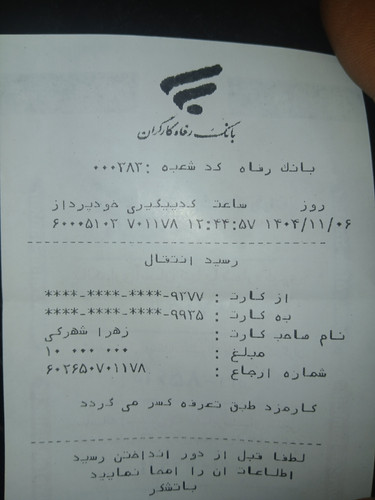 بانک رفاه کارگران
بانك رفاه کد شعبه :۰۰۰۳۸۲
روز ساعت کدپیگیری خودپرداز
۱۴۰۴/۱۱/۰۶ ۱۲:۴۴:۵۷ ۷۰۱۱۷۸ ۶۰۰۰۵۱۰۲
رسید انتقال
از کارت : ****-****-****-۹۲۷۷
به کارت : ****-****-****-۹۹۲۵
نام صاحب کارت : زهرا شهرکی
مبلغ : ۱۰ ۰۰۰ ۰۰۰
شماره ارجاع : ۶۰۲۶۵۰۷۰۱۱۷۸
کارمزد طبق تعرفه کسر می گردد
لطفا قبل از دور انداختن رسید
اطلاعات آن را امحا نمایید
باتشکر